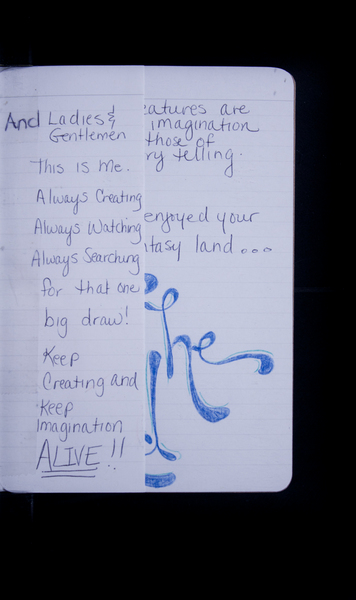 And Ladies &
Gentlemen
this is me.
Always Creating
Always Watching
Always Searching
for that one
big draw!
Keep
Creating and
Keep
Imagination
ALIVE!!
eatures are
imagination
those of
ry telling.
enjoyed your
tasy land...
The